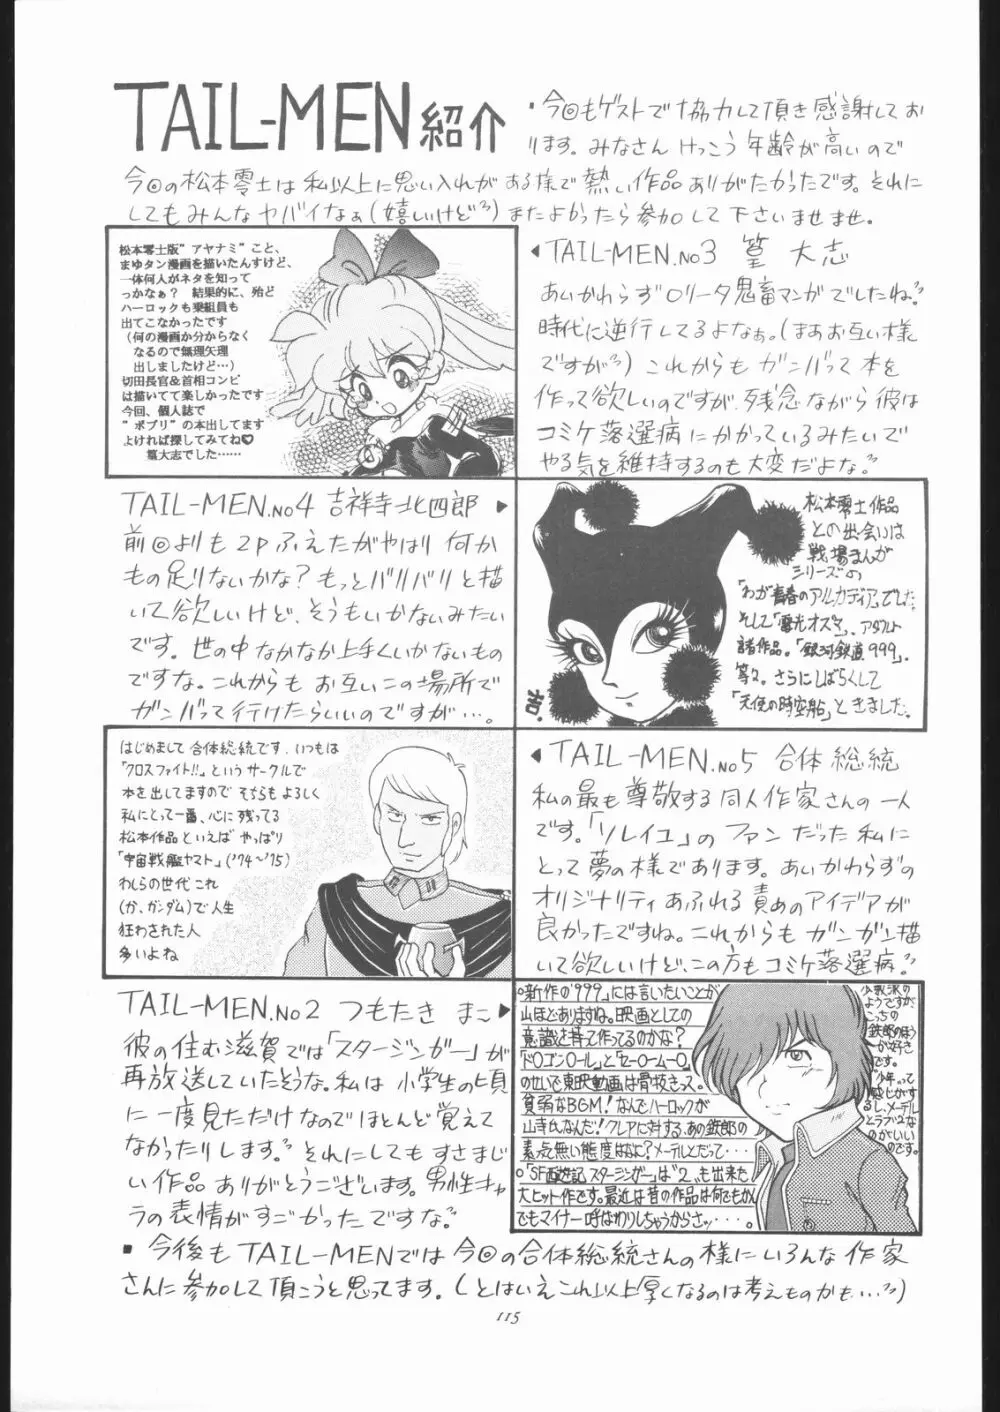 TAIL-MEN紹介
・今回もゲストで協力して頂き感謝してお
ります。みなさん けっこう年齢が高いので
今回の松本零士は私以上に思い入れがある様で熱い作品ありがたかったです。それに
してもみんなヤバイなぁ(嬉しいけど)またよかったら参加して下さいませませ。
松本零士版"アヤナミ"こと、
まゆタン漫画を描いたんすけど、
一体何人がネタを知って
っかなぁ? 結果的に、殆ど
ハーロックも乗組員も
出てこなかったです
(何の漫画か分からなく
なるので無理矢理
出しましたけど…)
切田長官&首相コンビ
は描いてて楽しかったです
今回、個人誌で
"ポプリ"の本出してます
よければ探してみてね♡
篁大志でした……
◀TAIL-MEN.No3 篁 大志
あいかわらずロリータ鬼畜マンガでしたね。
時代に逆行してるよなぁ。(まあお互い様
ですが)これからも ガンバって本を
作って欲しいのですが、残念ながら彼は
コミケ落選病にかかっているみたいで
やる気を維持するのも大変だよな。
TAIL-MEN.No4 吉祥寺北四郎 ▶
前回よりも2Pふえたがやはり何か
もの足りないかな?もっとバリバリと描
いて欲しいけど、そうもいかないみたい
です。世の中なかなか上手くいかないもの
ですな。これからも お互いこの場所で
ガンバって行けたらいいのですが…。
松本零士作品
との出会いは
戦場まんが
シリーズの
「わが青春のアルカディア」でした。
そして「電光オズマ」、アダルト
諸作品。「銀河鉄道999」.
等々。さらにしばらくして
「天使の時空船」ときました。
吉.
はじめまして 合体総統です. いつもは
「クロスファイト!!」というサークルで
本を出してますので そちらも よろしく
私にとって一番、心に残ってる
松本作品といえば やっぱり
「宇宙戦艦ヤマト」('74〜'75)
わしらの世代これ
(か、ガンダム)で人生
狂わされた人
多いよね
◀TAIL-MEN.No5 合体総統
私の最も尊敬する同人作家さんの一人
です。「ソレイユ」の ファンだった私に
とって夢の様であります。あいかわらずの
オリジナリティあふれる責めのアイデアが
良かったですね。これからも ガンガン描
いて欲しいけど、この方もコミケ落選病。
TAIL-MEN.No2 つもたき まこ
彼の住む滋賀では「スタージンガー」が
再放送していたそうな。私は小学生の頃
に一度見ただけなのでほとんど覚えて
なかったりします。それにしてもすさまじ
い作品ありがとうございます。男性キャ
ラの表情がすごかったですな。
○新作の「999」には言いたいことが
山ほどありますね。映画としての
意識を持って作ってるのかな?
「ドロゴンロール」と「セーロームーロ」
のせいで東映動画は骨抜きっス。
貧弱なBGM!なんでハーロックが
山寺氏なんだ!クレアに対する、あの鉄郎の
素っ気無い態度はなに?メーテルとだって・・・
○「SF西遊記スタージンガー」は"2"も出来た
大ヒット作です。最近は昔の作品は何でもかん
でもマイナー呼ばわりしちゃうからさッ・・・・。
少数派の
ようですが、
こっちの
鉄郎のほう
が好き
です。
「少年」って
感じがす
るし、メーテル
とラブ2な
のがいい
のです。
・今後もTAIL-MENでは今回の合体総統さんの様にいろんな作家
さんに参加して頂こうと思ってます。(とはいえこれ以上厚くなるのは考えものかも…)
115